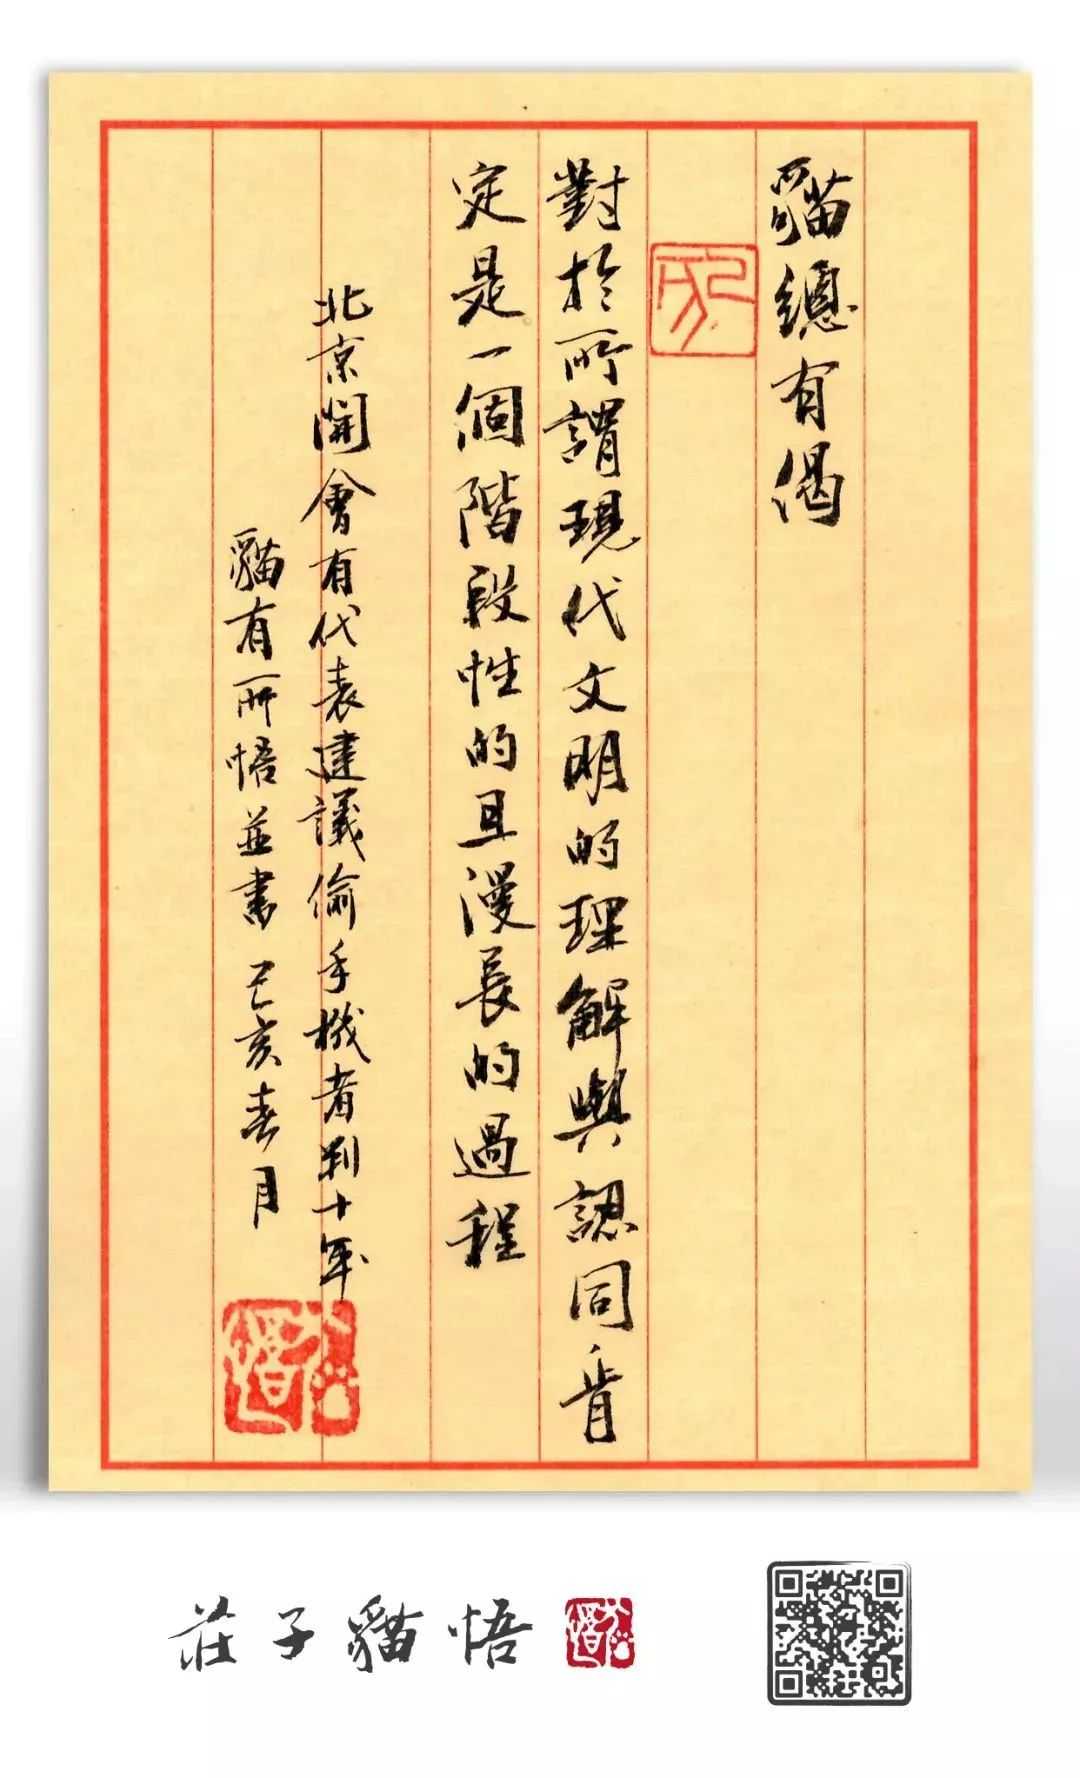 貓總有偈
對於所謂現代文明的理解與認同肯
定是一個階段性的且漫長的過程
北京開會有代表建議偷手機者判十年
貓有所悟並書 己亥春月
莊子貓悟